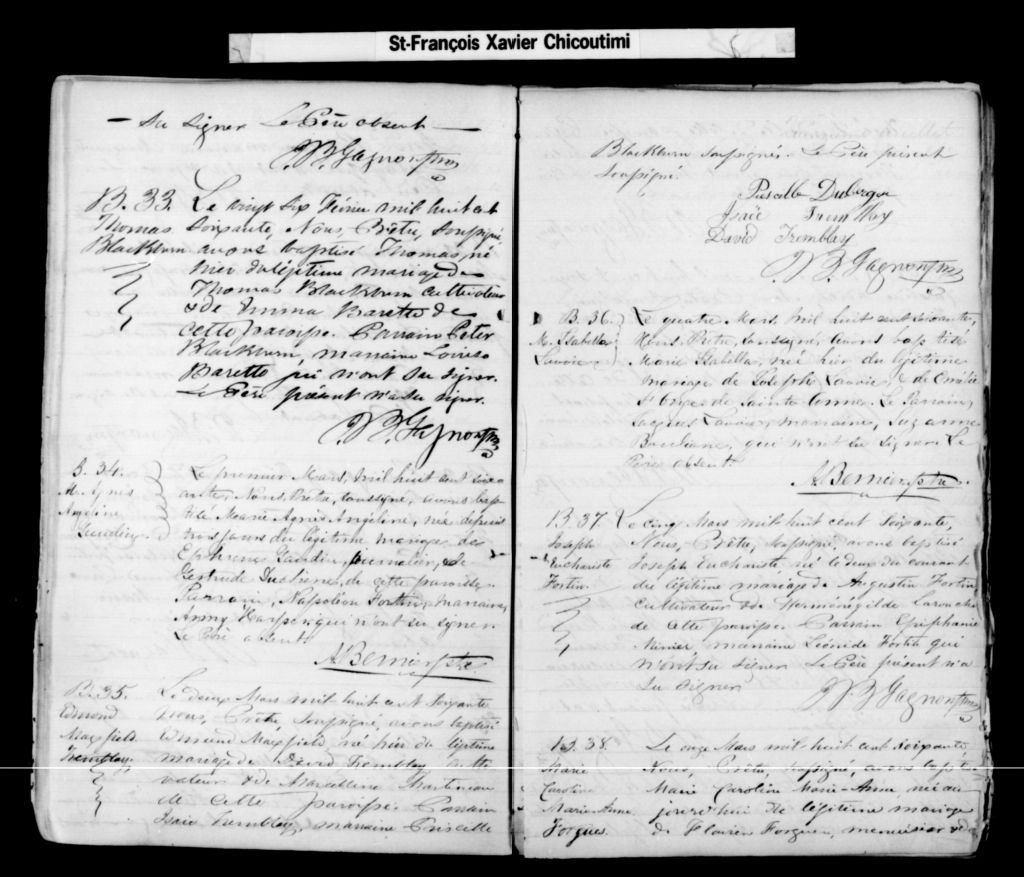 St-François Xavier Chicoutimi
— su signer Le Père absent —
J B Gagnon Ptre
B. 33. Le vingt six Février mil huit cent
Thomas soixante, Nous, Prêtre, soussigné,
Blackburn avons baptisé Thomas né
hier du légitime mariage de
Thomas Blackburn cultivateur
& de Emma Baretto de
cette paroisse. Parrain Peter
Blackburn, marraine Louise
Baretto qui n'ont su signer.
Le Père présent n'a su signer.
J B Gagnon Ptre
B. 34. Le premier Mars, mil huit cent soix-
M. Agnès ante, Nous, Prêtre, soussigné, avons bap-
Angéline tisé Marie Agnès Angéline, née depuis
Gaudin trois jours du légitime mariage de
Ephrem Gaudin, journalier, & de
Gertrude Duchene, de cette paroisse,
Parrain, Napoléon Fortin, marraine,
Anny Harper qui n'ont su signer.
Le Père absent.
A Bernier Ptre
B. 35. Le deux Mars mil huit cent soixante
Edmond Nous, Prêtre, soussigné, avons baptisé
Maxfield Edmond Maxfield, né hier du légitime
Tremblay mariage de David Tremblay culti-
vateur & de Marcelline Martineau
de cette paroisse. Parrain
Isaïe Tremblay, marraine Priscille
Blackburn soussignés. Le Père présent
soussigné.
Priscille Duberger
Isaïe Tremblay
David Tremblay
J B Gagnon Ptre
B. 36. Le quatre Mars, mil huit cent soixante,
M. Isabella Nous, Prêtre, soussigné, avons baptisé
Lavoie Marie Isabella, née hier du légitime
mariage de Joseph Lavoie, & de Emélie
St Onge de Sainte Anne. Le Parrain,
Jacques Lavoie, marraine, Suzanne
Bouliane, qui n'ont su signer. Le
Père absent.
A Bernier Ptre.
B. 37. Le cinq Mars mil huit cent soixante,
Joseph Nous, Prêtre, soussigné, avons baptisé
Euchariste Joseph Euchariste né le deux du courant
Fortin. du légitime mariage de Augustin Fortin
cultivateur & de Herménégilde Larouche
de cette paroisse. Parrain Epiphanie
Minier marraine Léonide Fortin qui
n'ont su signer Le Père présent n'a
su signer
J B Gagnon Ptre
B. 38. Le onze Mars mil huit cent soixante
Marie Nous, Prêtre, soussigné, avons baptisé
Caroline Marie Caroline Marie-Anne née au-
Marie-Anne jourd'hui du légitime mariage
Forgues. de Flavien Forgues, menuisier & de